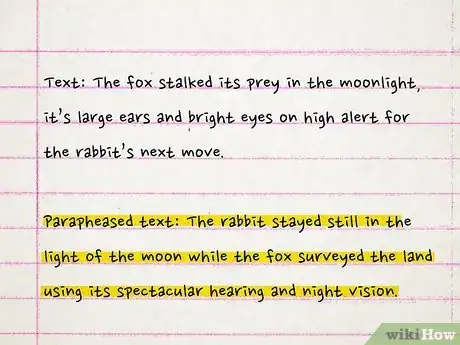 Text: The fox stalked its prey in the moonlight,
it's large ears and bright eyes on high alert for
the rabbit's next move.
Parapheased text: The rabbit stayed still in the
light of the moon while the fox surveyed the land
using its spectacular hearing and night vision.
wikiHow